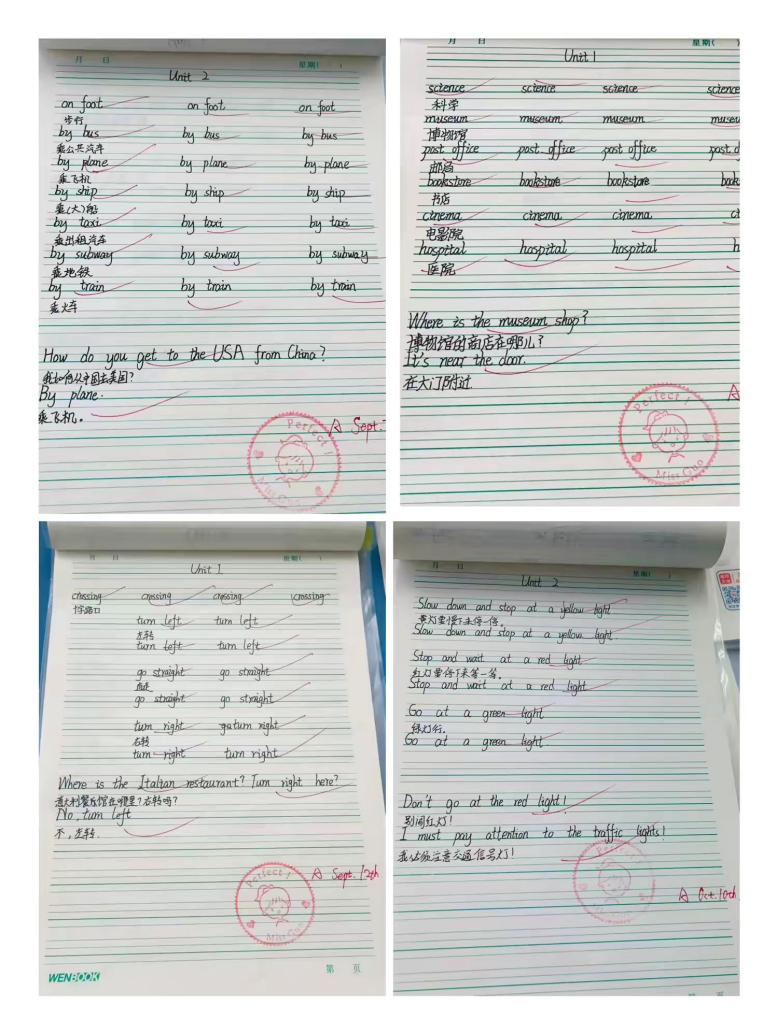 月 日 星期( )
Unit 2
on foot on foot on foot
步行
by bus by bus by bus
乘公共汽车
by plane by plane by plane
乘飞机
by ship by ship by ship
乘(大)船
by taxi by taxi by taxi
乘出租汽车
by subway by subway by subway
乘地铁
by train by train by train
乘火车
How do you get to the USA from China?
我如何从中国去美国?
By plane.
乘飞机。
A Sept.
Perfect!
月 日 星期(
Unit 1
science science science science
科学
museum museum museum museu
博物馆
post office post office post office post o
邮局
bookstore bookstore bookstore book
书店
cinema cinema cinema ci
电影院
hospital hospital hospital h
医院
Where is the museum shop?
博物馆的商店在哪儿?
It's near the door.
在大门附近
A
Perfect!
Miss Guo
月 日 星期( )
Unit 1
crossing crossing crossing crossing
十字路口
turn left turn left
左转
turn left turn left
go straight go straight
直走
go straight go straight
turn right go turn right
右转
turn right turn right
Where is the Italian restaurant? Turn right here?
意大利餐馆在哪里?右转吗?
No, turn left
不,左转.
A Sept. 12th
Perfect!
Miss Guo
WENBOOK
第 页
月 日 星期( )
Unit 2
Slow down and stop at a yellow light
黄灯要慢下来停一停。
Slow down and stop at a yellow light.
Stop and wait at a red light
红灯要停下来等一等。
Stop and wait at a red light
Go at a green light
绿灯行。
Go at a green light.
Don't go at the red light!
别闯红灯!
I must pay attention to the traffic lights!
我必须注意交通信号灯!
A Oct. 10th
Perfect!
第 页